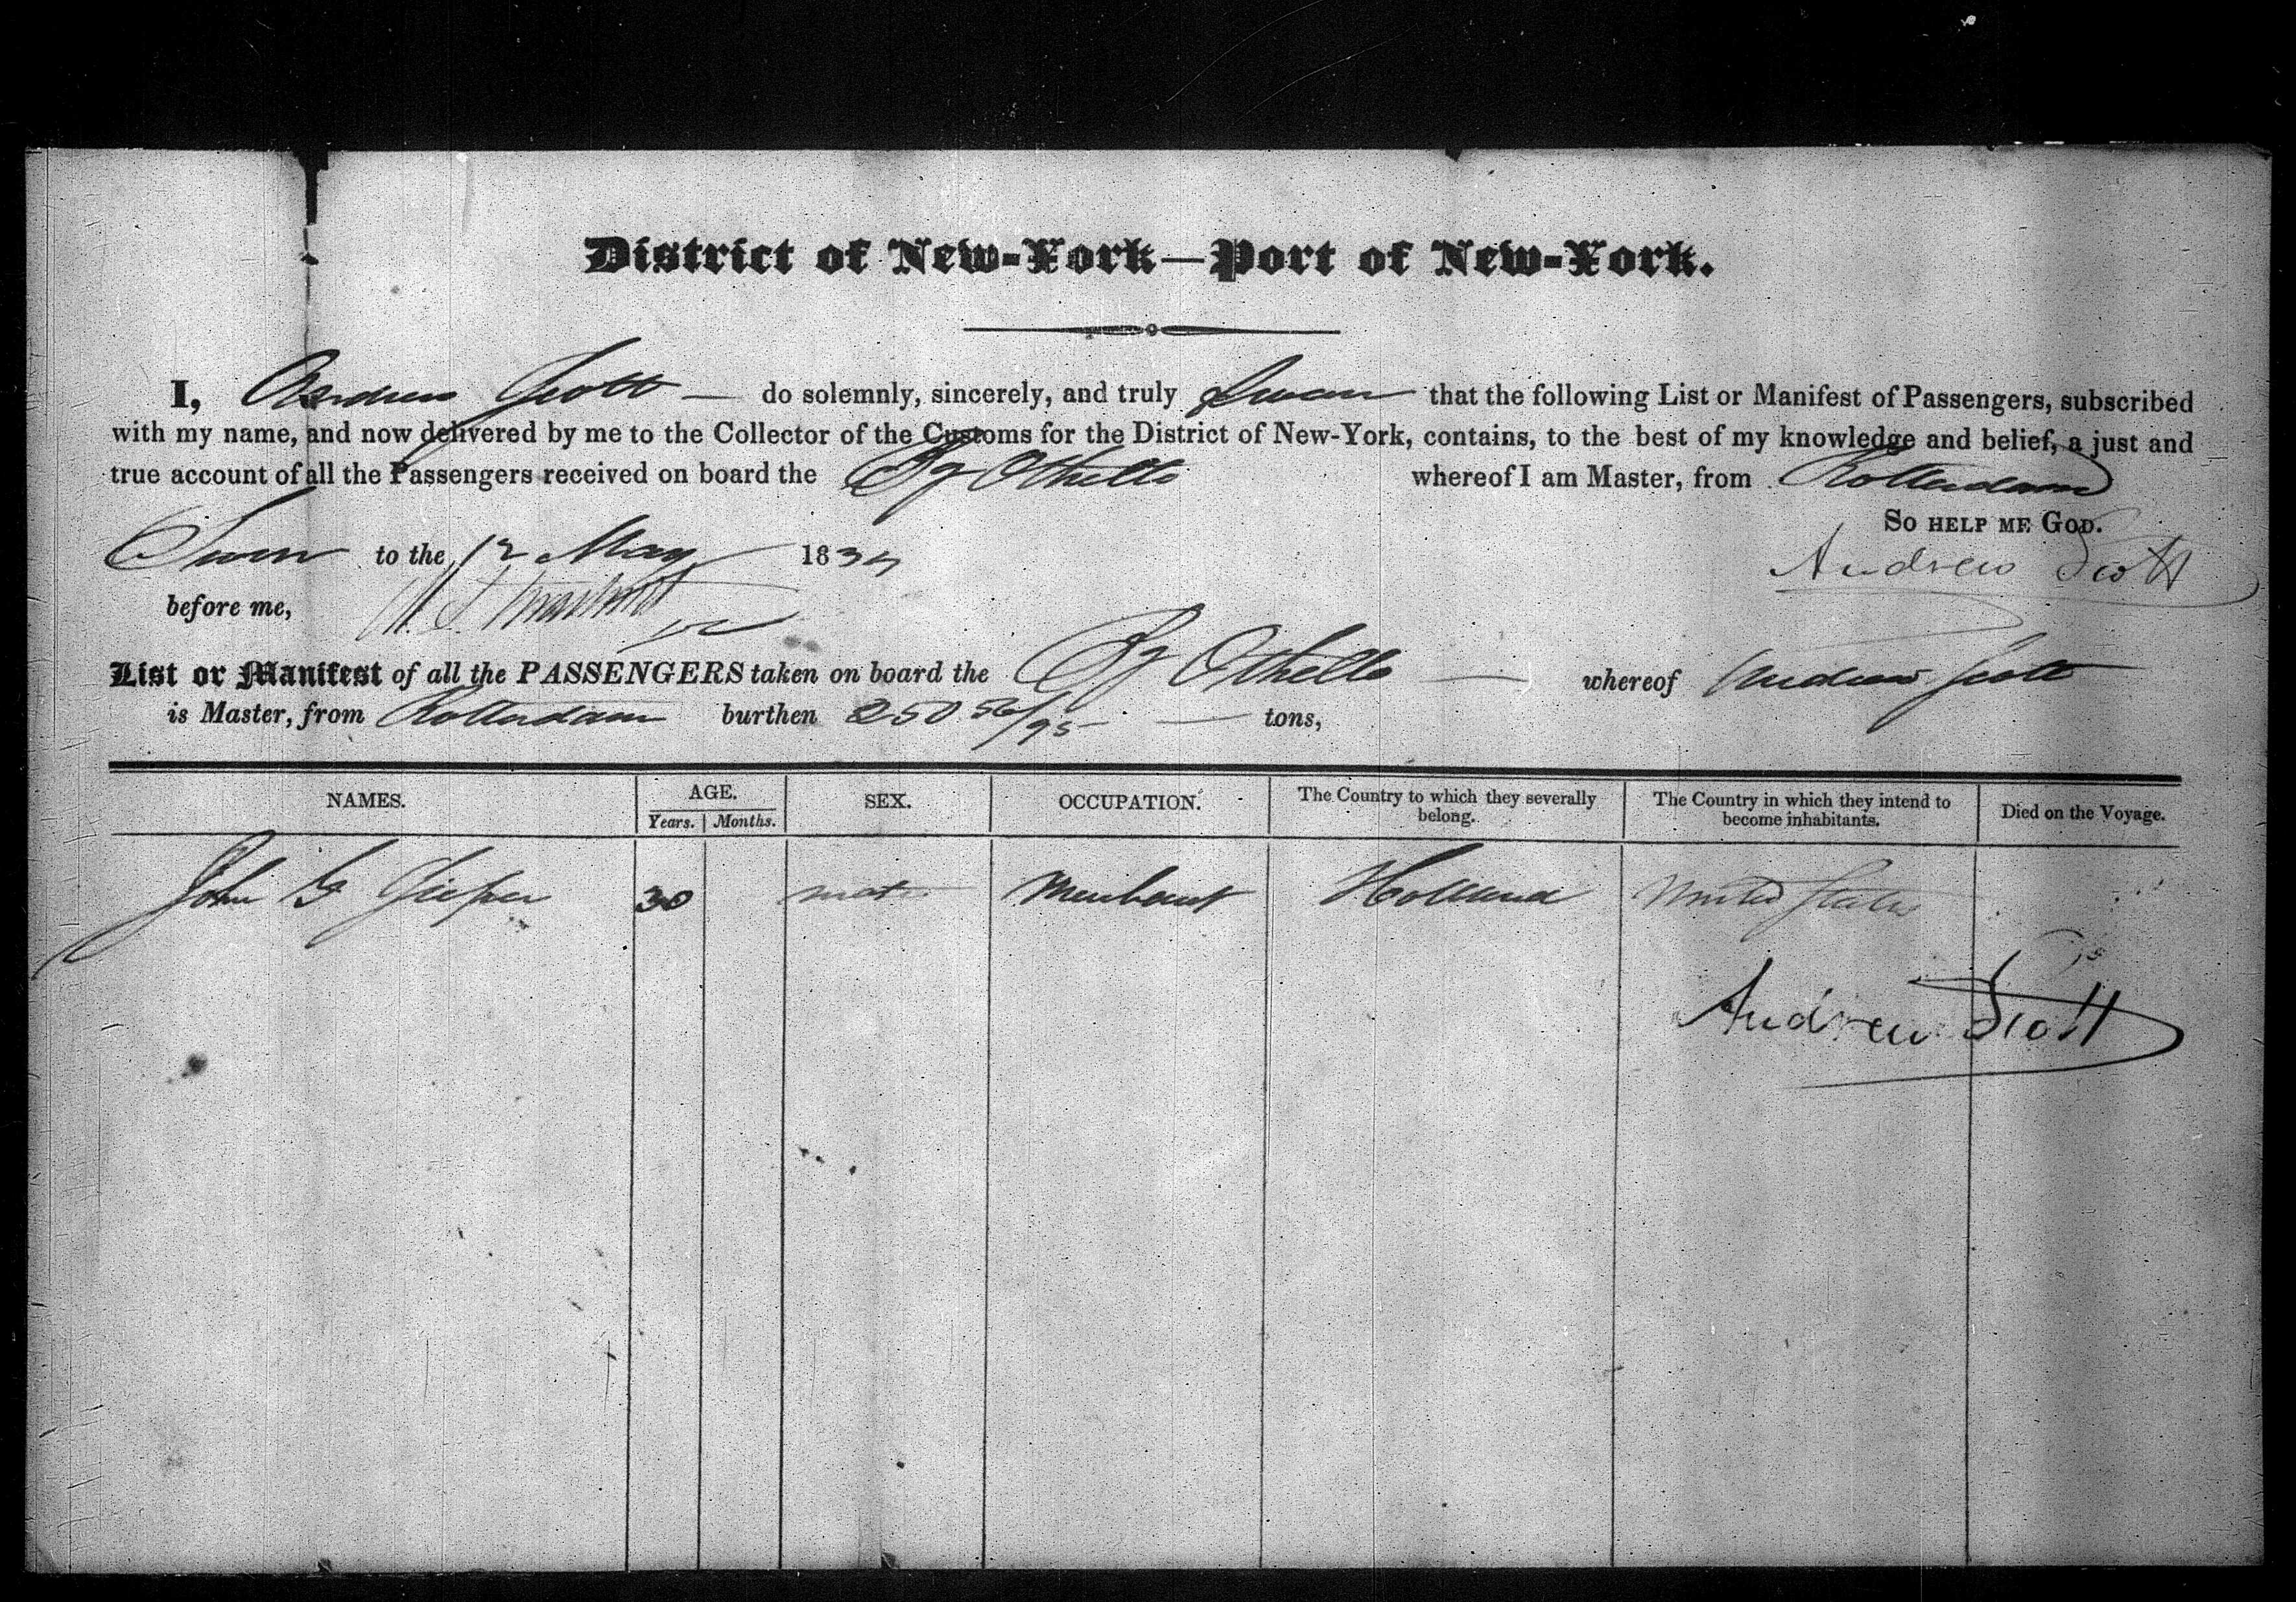 District of New-York—Port of New-York.
I, Andrew Scott — do solemnly, sincerely, and truly Swear that the following List or Manifest of Passengers, subscribed
with my name, and now delivered by me to the Collector of the Customs for the District of New-York, contains, to the best of my knowledge and belief, a just and
true account of all the Passengers received on board the Bg Othello whereof I am Master, from Rotterdam
So help me God.
Sworn to the 12 May 1834
Andrew Scott
before me,
List or Manifest of all the PASSENGERS taken on board the Bg Othello — whereof Andrew Scott
is Master, from Rotterdam burthen 250 56/95 — tons,
NAMES. AGE. SEX. OCCUPATION. The Country to which they severally belong. The Country in which they intend to become inhabitants. Died on the Voyage.
Years. Months.
John G 30 Merchant Holland United States
Andrew Scott